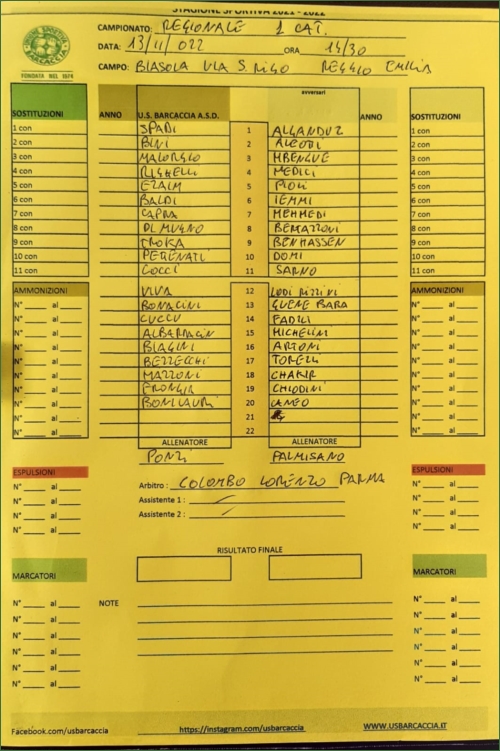 STAGIONE SPORTIVA 2021 - 2022
CAMPIONATO: REGIONALE 1 CAT.
DATA: 13/11/022 ORA 14/30
CAMPO: BIASOLA VIA S. RIGO REGGIO EMILIA
FONDATA NEL 1874
SOSTITUZIONI ANNO U.S. BARCACCIA A.S.D. avversari ANNO SOSTITUZIONI
1 con SPADI 1 1 con
2 con BINI 2 ALCODI 2 con
3 con MAIORGIO 3 MBENGUE 3 con
4 con RIGHELLI 4 MEDICI 4 con
5 con EZAIM 5 PIOLI 5 con
6 con BALDI 6 IEMMI 6 con
7 con CAPRA 7 MEHMEDI 7 con
8 con DI MURNO 8 BEMAZZONI 8 con
9 con TROISA 9 BENHASSEN 9 con
10 con PEGENATI 10 DOMI 10 con
11 con COCCI 11 SARNO 11 con
AMMONIZIONI VIVA 12 LODI RIZZINI AMMONIZIONI
N° al BONACINI 13 GUEYE BARA N° al
N° al CUCCU 14 FADILI N° al
N° al ALBARRACIN 15 MICHELINI N° al
N° al BIAGINI 16 ARTONI N° al
N° al BEZZECCHI 17 TORELLI N° al
N° al MAZZONI 18 CHAKIR N° al
N° al FRONGIA 19 CHIODINI N° al
N° al BONILAURI 20 CANEO N° al
N° al 21 N° al
N° al 22 N° al
ALLENATORE ALLENATORE
PONZI PALMISANO
ESPULSIONI Arbitro : COLOMBO LORENZO PARMA ESPULSIONI
N° al Assistente 1 : N° al
N° al Assistente 2 : N° al
N° al N° al
N° al N° al
RISULTATO FINALE
MARCATORI MARCATORI
N° al NOTE N° al
N° al N° al
N° al N° al
N° al N° al
N° al N° al
N° al N° al
Facebook.com/usbarcaccia https://instagram.com/usbarcaccia WWW.USBARCACCIA.IT